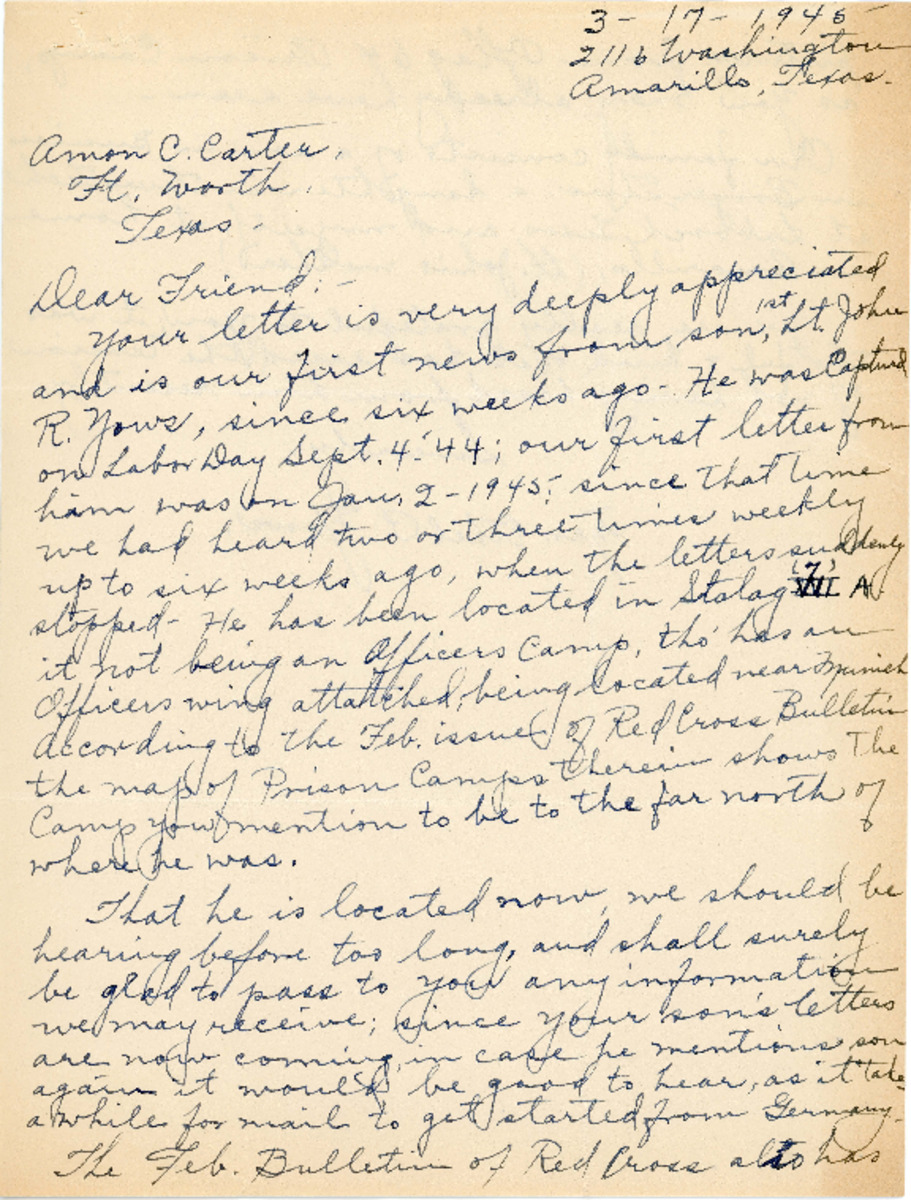 3 - 17 - 1945
2116 Washington
Amarillo, Texas.
Amon C. Carter,
Ft. Worth,
Texas -
Dear Friend: -
Your letter is very deeply appreciated
and is our first news from son, 1st Lt. John
R. Yows, since six weeks ago - He was Captured
on Labor Day Sept. 4 - '44; our first letter from
him was on Jan. 2 - 1945; since that time
we had heard two or three times weekly
up to six weeks ago, when the letters suddenly
stopped - He has been located in Stalag VII (7) A
it not being an Officers Camp, tho' has an
Officers wing attatched, being located near Munich
According to the Feb. issue of Red Cross Bulletin
the map of Prison Camps therein shows The
Camp you mention to be to the far north of
where he was.
That he is located now, we should be
hearing before too long, and shall surely
be glad to pass to you any information
we may receive; since your son's letters
are now coming, in case he mentions son
again it would be good to hear, as it take
a while for mail to get started from Germany.
The Feb. Bulletin of Red Cross also has